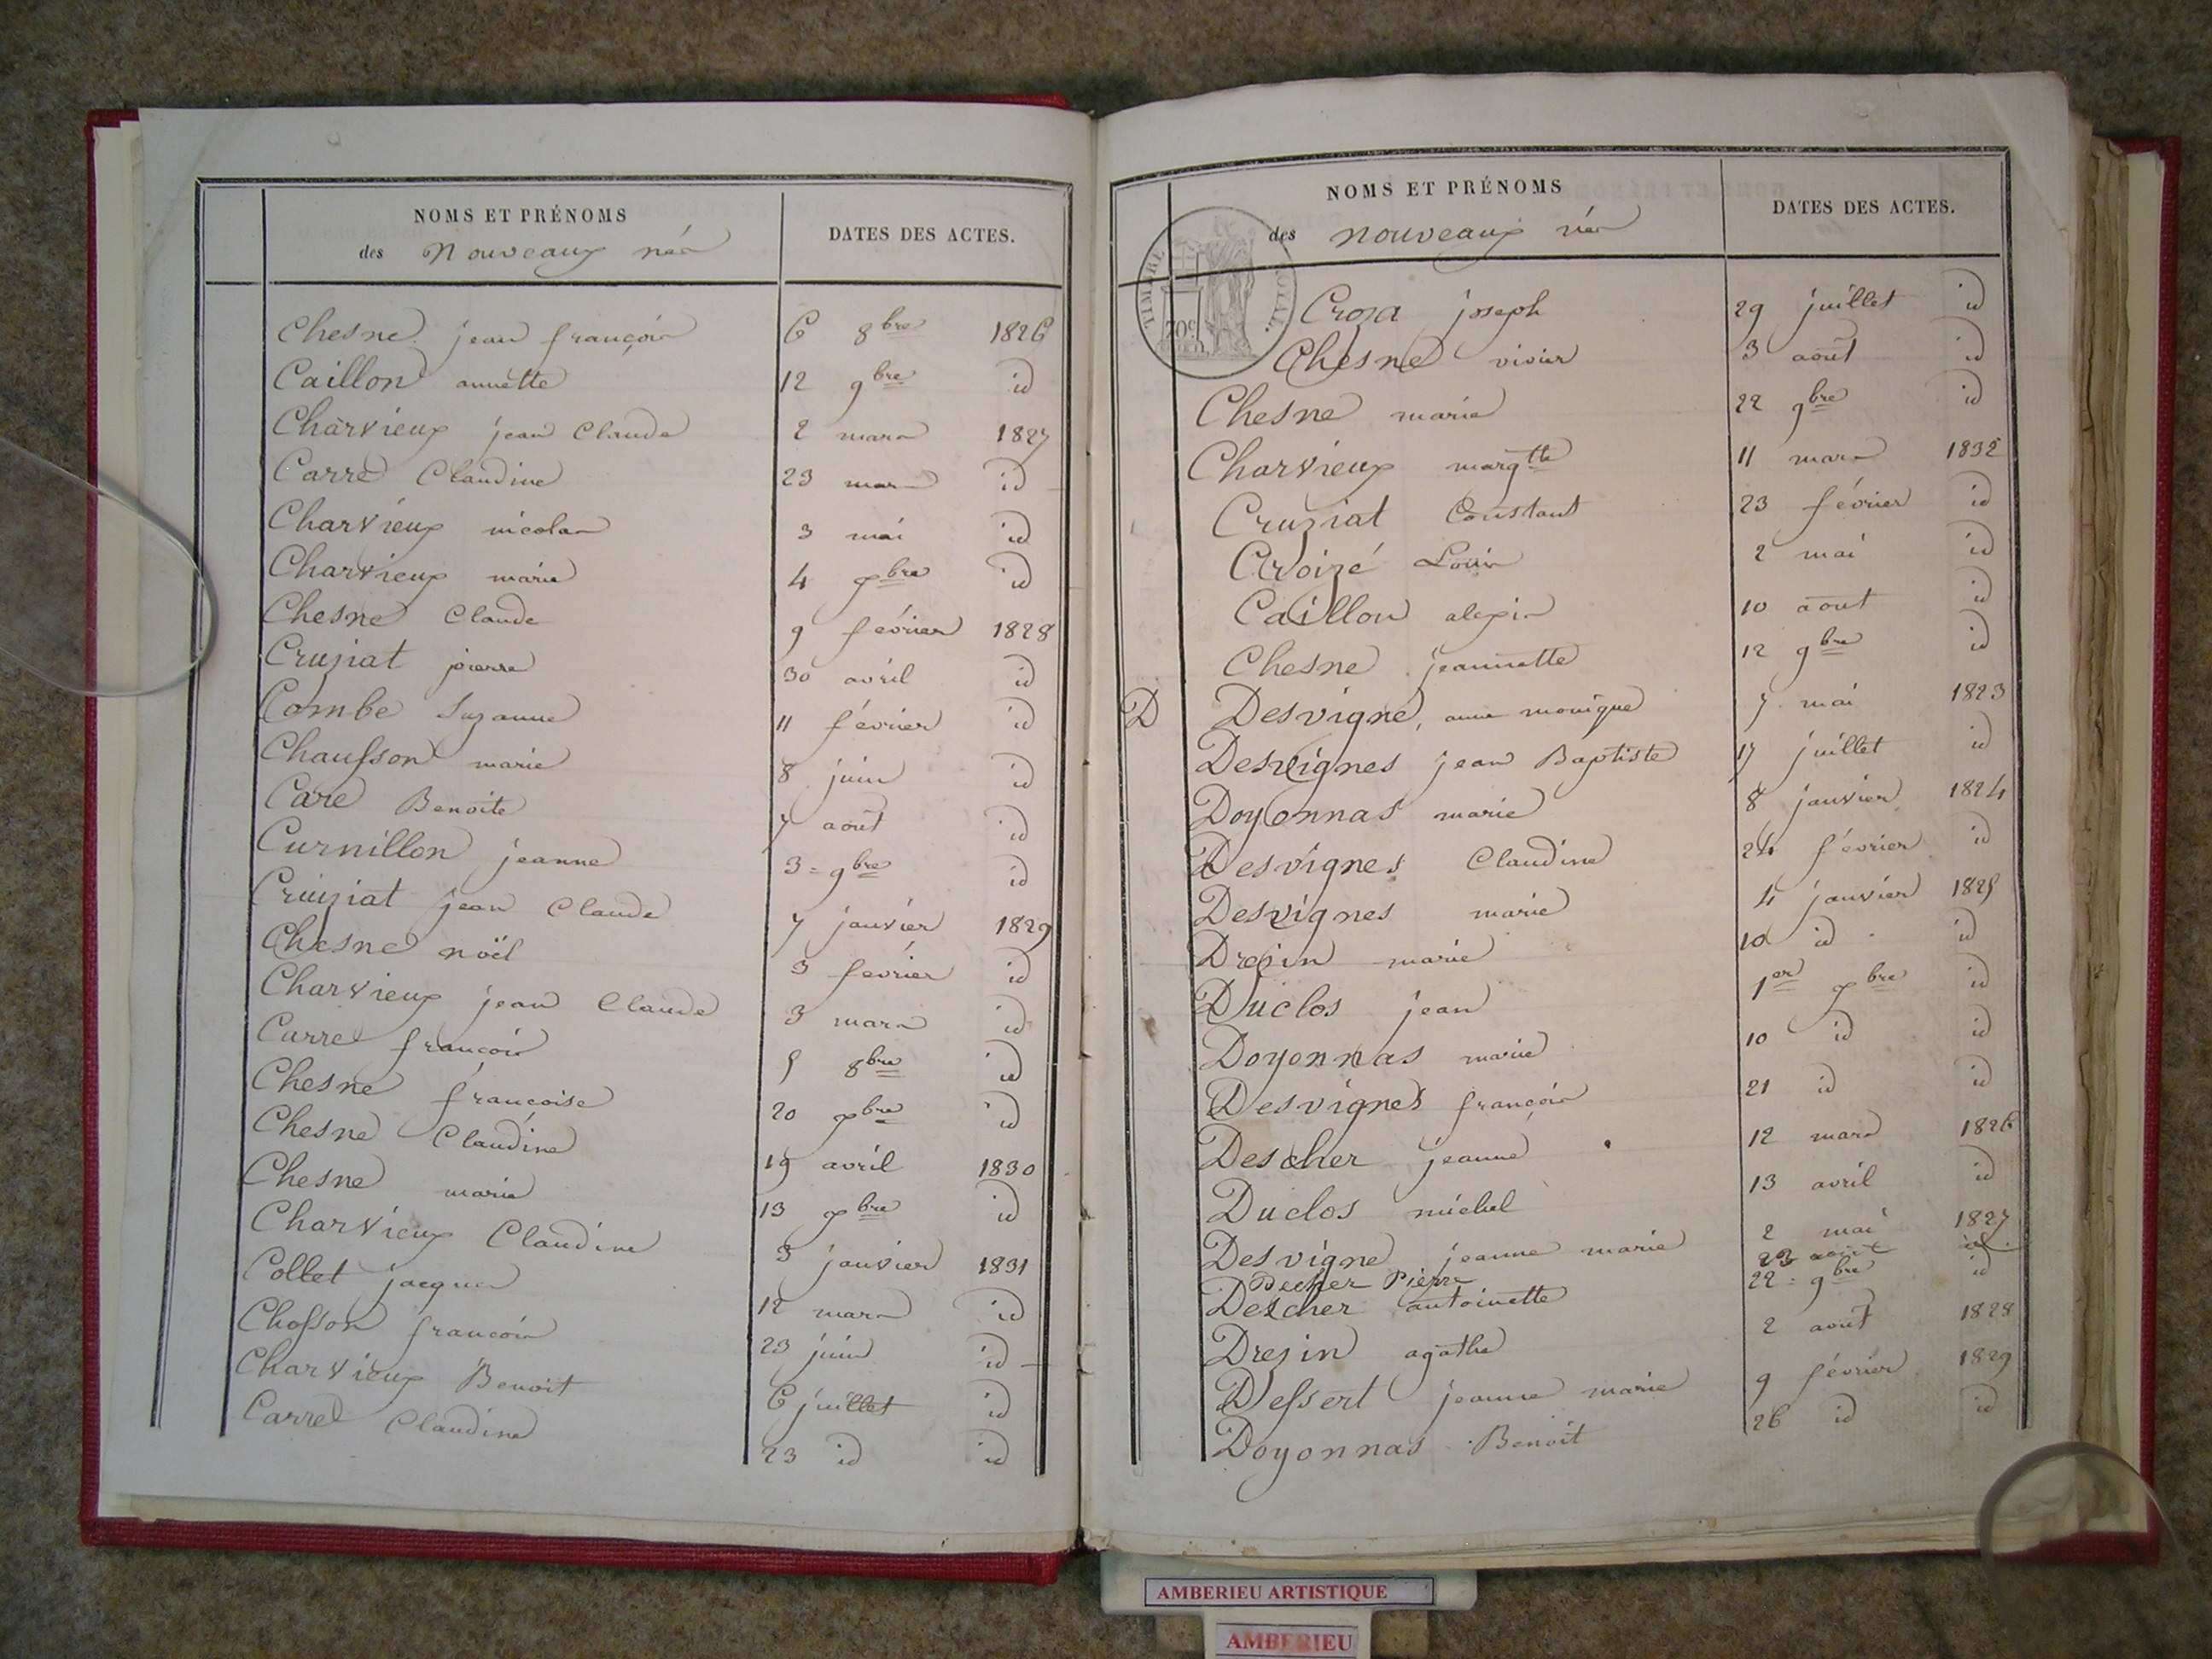 NOMS ET PRÉNOMS
des Nouveaux nés
DATES DES ACTES.
Chesne jean françois 6 8bre 1826
Caillon annette 12 9bre id
Charvieux jean Claude 2 mars 1827
Carré Claudine 23 mars id
Charvieux nicolas 3 mai id
Charvieux marie 4 Xbre id
Chesne Claude 9 février 1828
Cruziat pierre 30 avril id
Combe Suzanne 11 février id
Chausson marie 8 juin id
Care Benoite 7 août id
Curnillon jeanne 3 = 9bre id
Cruiziat jean Claude 7 janvier 1829
Chesne noël 3 fevrier id
Charvieux jean Claude 3 mars id
Carrel françois 5 8bre id
Chesne françoise 20 Xbre id
Chesne Claudine 19 avril 1830
Chesne marie 13 Xbre id
Charvieux Claudine 3 janvier 1831
Collet jacques 12 mars id
Chosson françois 23 juin id
Charvieux Benoit 6 juillet id
Carrel Claudine 23 id id
NOMS ET PRÉNOMS
des nouveaux nés
DATES DES ACTES.
TIMBRE ROYAL.
70c
Croza joseph 29 juillet id
Chesne vivier 3 août id
Chesne marie 22 9bre id
Charvieux margtte 11 mars 1832
Cruziat Constant 23 février id
Croizé Louis 2 mai id
Caillon alexis 10 aout id
Chesne jeannette 12 9bre id
D Desvigne, anne monique 7 mai 1823
Desvignes jean Baptiste 17 juillet id
Doyonnas marie 8 janvier 1824
Desvignes Claudine 24 février id
Desvignes marie 4 janvier 1825
Drezin marie 10 id id
Duclos jean 1er Xbre id
Doyonnas marie 10 id id
Desvignes françois 21 id id
Descher jeanne 12 mars 1826
Duclos michel 13 avril id
Desvigne jeanne marie 2 mai 1827
Decher Pierre 23 août id.
Descher antoinette 22 = 9bre id
Drezin agathe 2 août 1828
Dessert jeanne marie 9 février 1829
Doyonnas Benoit 26 id id
AMBERIEU ARTISTIQUE
AMBERIEU